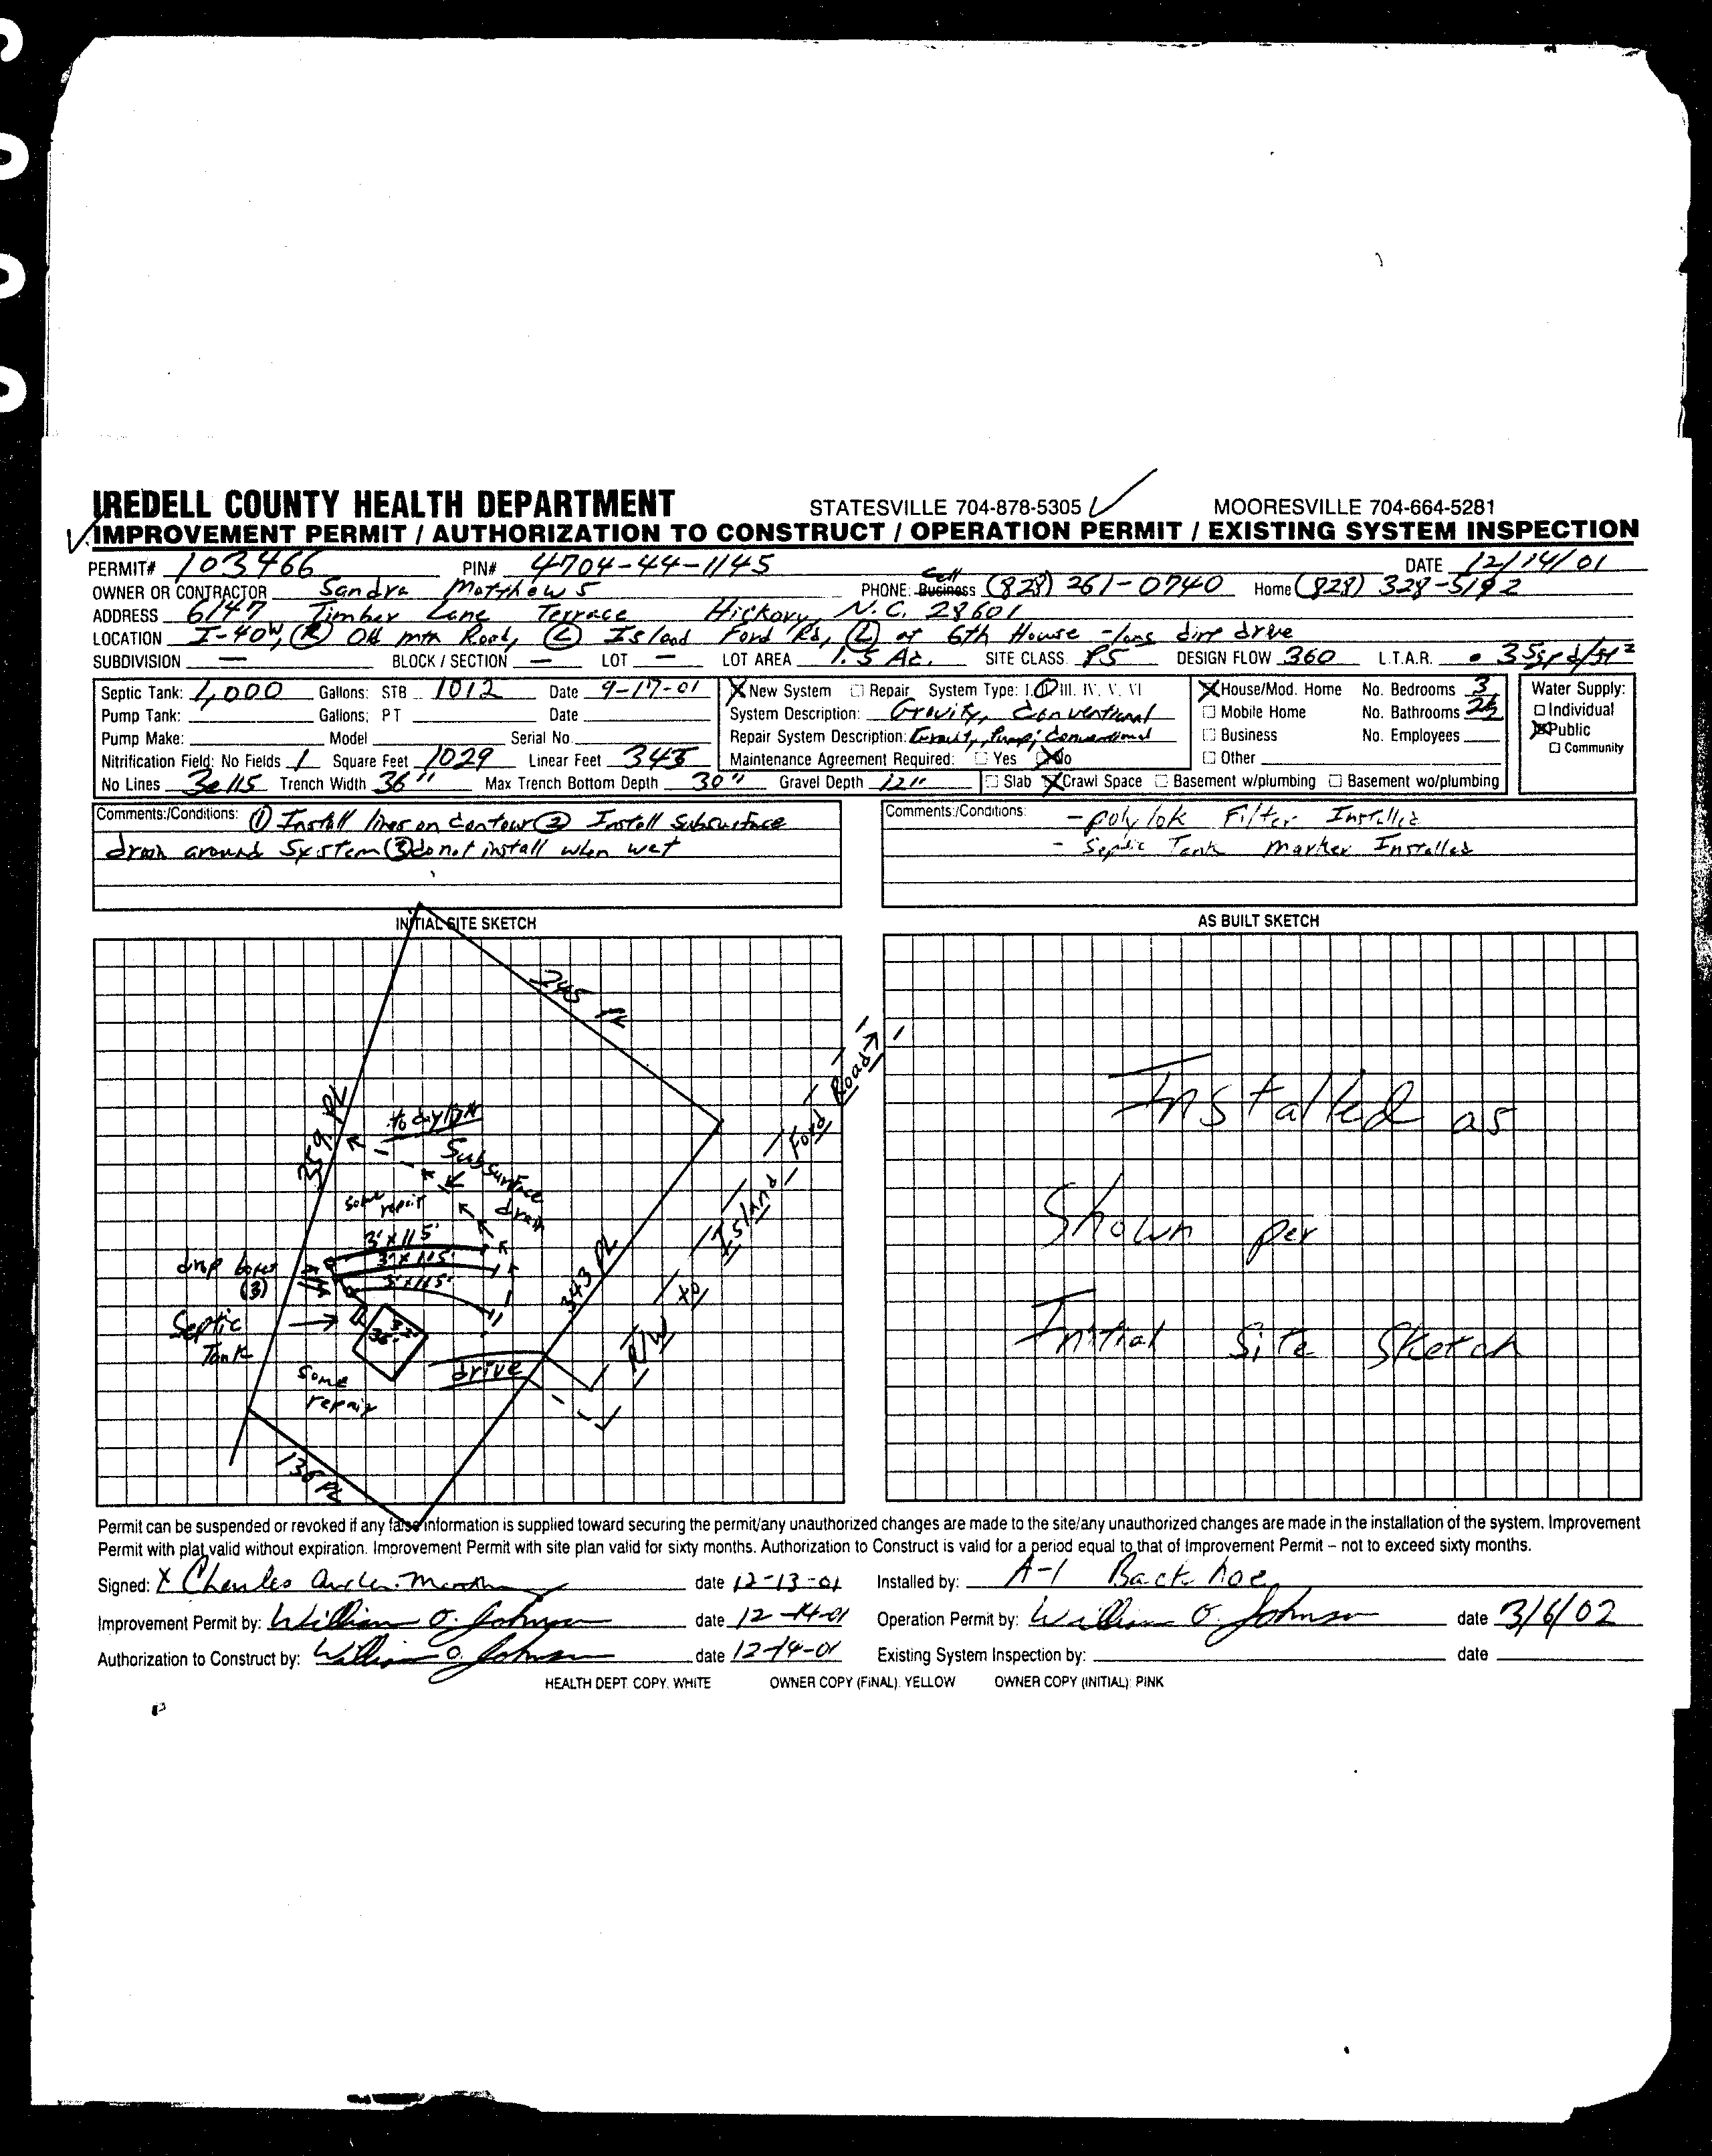 IREDELL COUNTY HEALTH DEPARTMENT STATESVILLE 704-878-5305 MOORESVILLE 704-664-5281
IMPROVEMENT PERMIT / AUTHORIZATION TO CONSTRUCT / OPERATION PERMIT / EXISTING SYSTEM INSPECTION
PERMIT# 103466 PIN# 4704-44-1145 DATE 12/14/01
OWNER OR CONTRACTOR Sandra Matthews PHONE: Business Cell (828) 261-0740 Home (828) 328-5192
ADDRESS 6147 Timber Lane Terrace Hickory, N.C. 28601
LOCATION I-40W, (R) Old mtn Road, (L) Island Ford Rd, (L) at 6th House - long dirt drive
SUBDIVISION — BLOCK / SECTION — LOT — LOT AREA 1.5 Ac. SITE CLASS PS DESIGN FLOW 360 L.T.A.R. .35gpd/ft²
Septic Tank: 1,000 Gallons: STB 1012 Date 9-17-01
Pump Tank: Gallons: PT Date
Pump Make: Model Serial No.
Nitrification Field: No Fields 1 Square Feet 1029 Linear Feet 343
No Lines 3@115 Trench Width 36" Max Trench Bottom Depth 30" Gravel Depth 12"
X New System Repair System Type: I. II III. IV. V. VI
System Description: Gravity, Conventional
Repair System Description: Gravity, Pump; Conventional
Maintenance Agreement Required: Yes X No
Slab X Crawl Space Basement w/plumbing Basement wo/plumbing
X House/Mod. Home No. Bedrooms 3
Mobile Home No. Bathrooms 2½
Business No. Employees
Other
Water Supply:
Individual
X Public
Community
Comments:/Conditions: (1) Install lines on Contour (2) Install Subsurface
drain around System (3) do not install when wet
Comments:/Conditions: - polylok Filter Installed
- Septic Tank marker Installed
INITIAL SITE SKETCH
245 PL
359 PL
to daylight
Subsurface
drain
some
repair
3' x 115'
3' x 115'
3' x 115'
drop boxes
(3)
Septic
Tank
36'
32'
343 PL
Island Ford Road
to
R/W
drive
Some
repair
136 PL
AS BUILT SKETCH
Installed as
Shown per
Initial Site Sketch
Permit can be suspended or revoked if any false information is supplied toward securing the permit/any unauthorized changes are made to the site/any unauthorized changes are made in the installation of the system. Improvement
Permit with plat valid without expiration. Improvement Permit with site plan valid for sixty months. Authorization to Construct is valid for a period equal to that of Improvement Permit – not to exceed sixty months.
Signed: X Charles date 12-13-01 Installed by: A-1 Backhoe
Improvement Permit by: William O. Johnson date 12-14-01 Operation Permit by: William O. Johnson date 3/6/02
Authorization to Construct by: William O. Johnson date 12-14-01 Existing System Inspection by: date
HEALTH DEPT. COPY: WHITE OWNER COPY (FINAL): YELLOW OWNER COPY (INITIAL): PINK